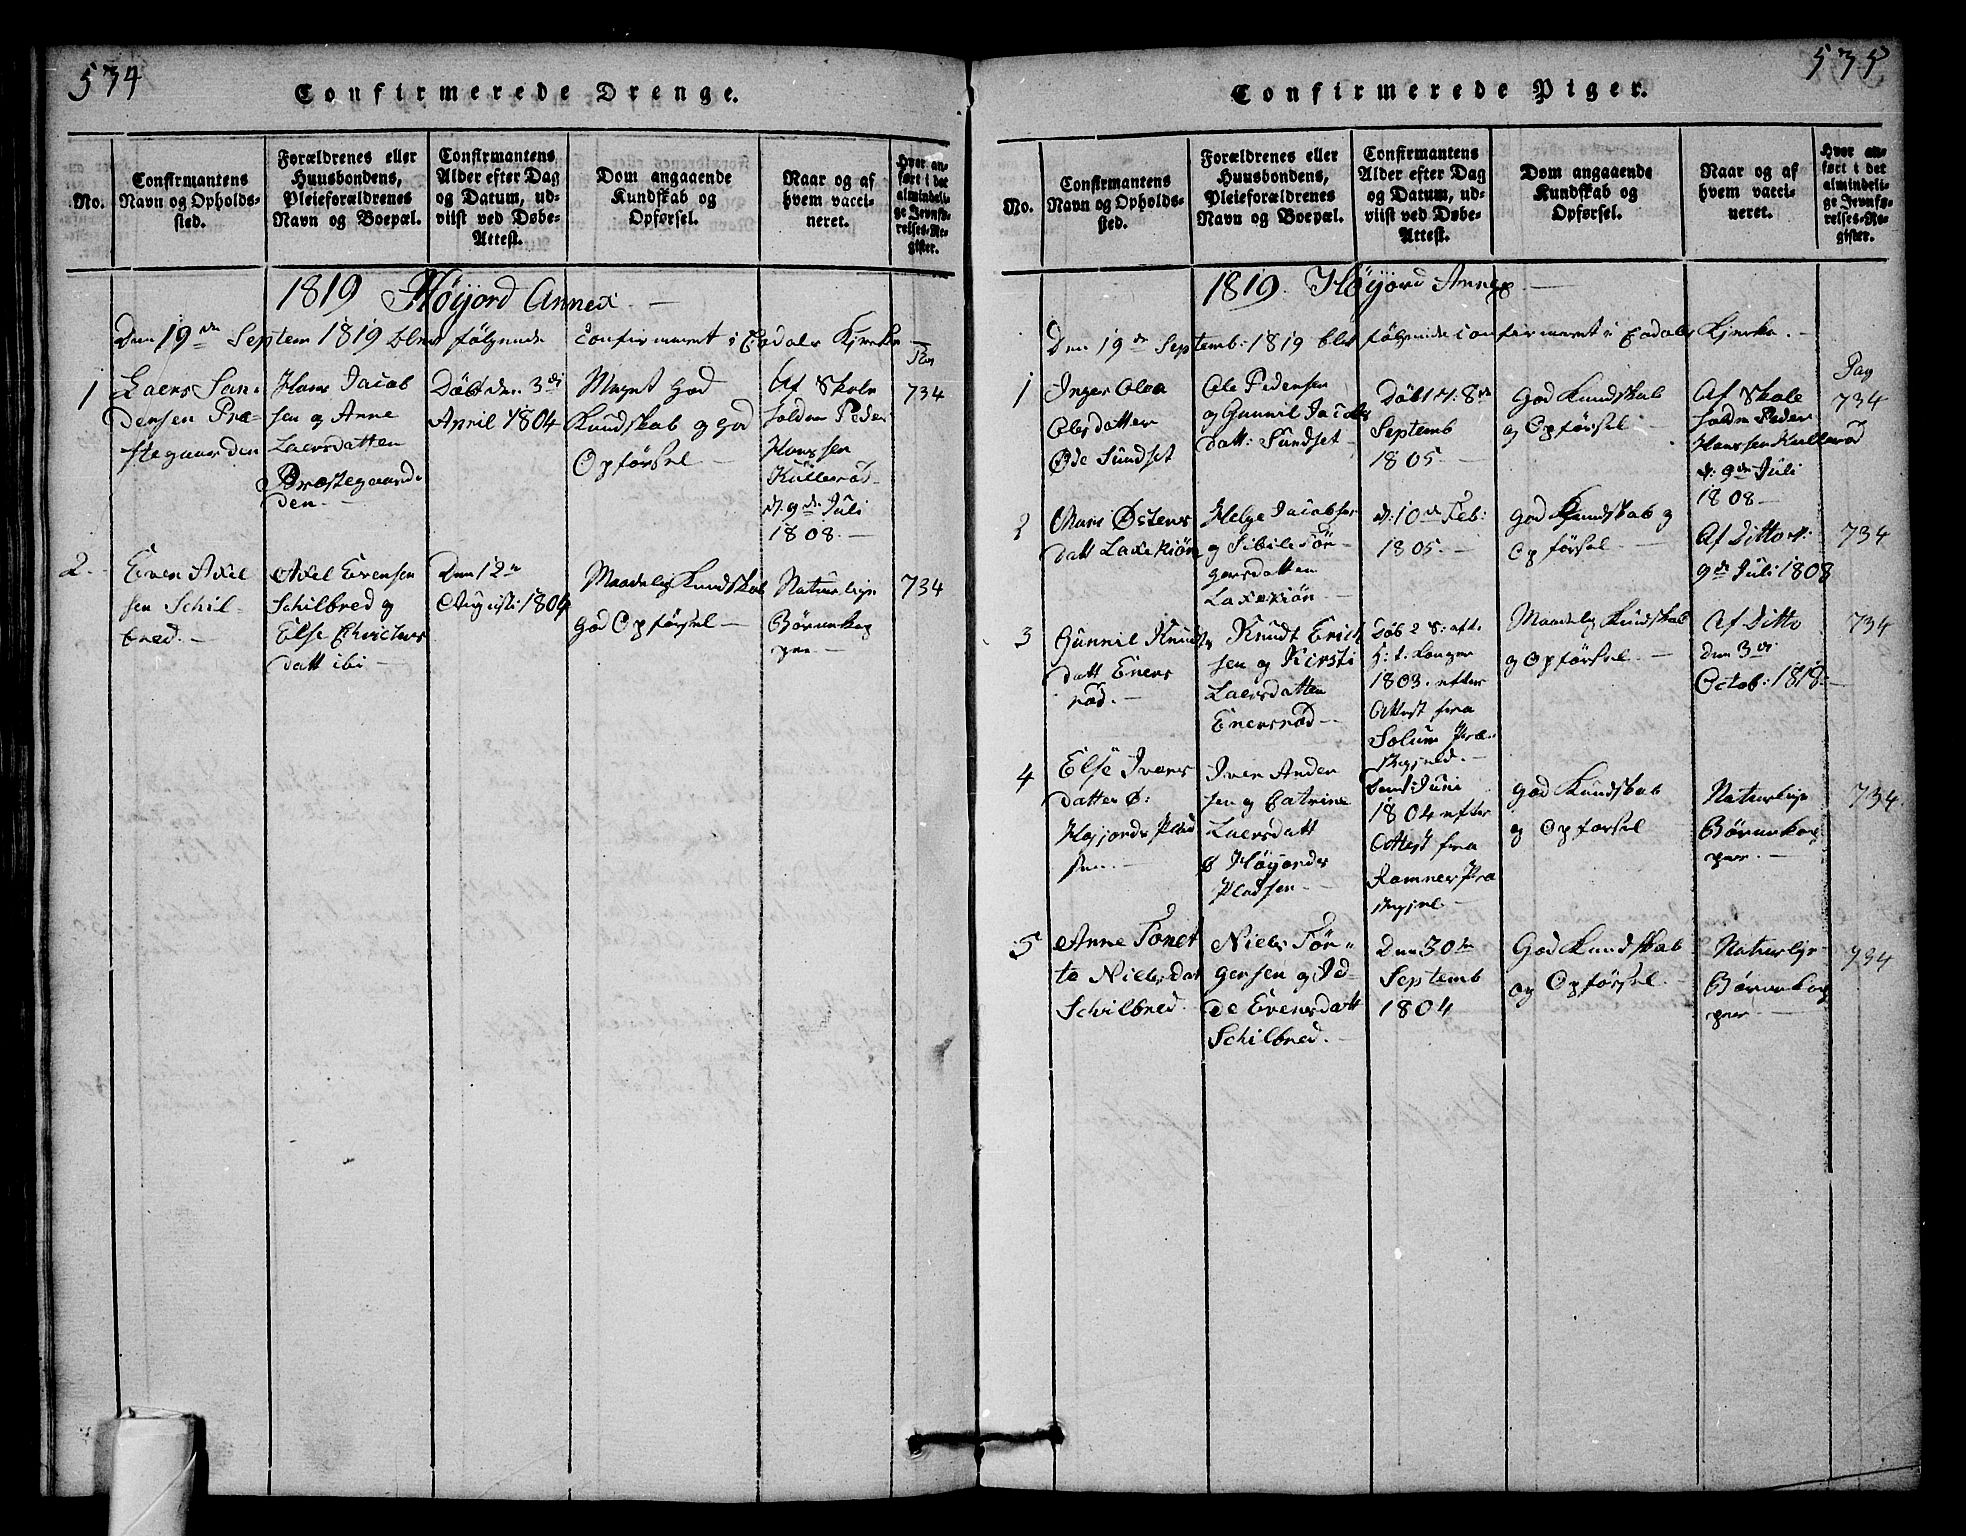 534
Confirmerede Drenge.
No.
Confirmantens
Navn og Opholds-
sted.
Forældrenes eller
Huusbondens,
Pleieforældrenes
Navn og Boepæl.
Confirmantens
Alder efter Dag
og Datum, ud-
viist ved Døbe-
Attest.
Dom angaaende
Kundskab og
Opførsel.
Naar og af
hvem vacci-
neret.
Hvor an-
ført i det
almindeli-
ge Jevnfø-
relses-Re-
gister.
1819 Höyjord Annex —
Den 19de Septem 1819 blev følgende Confirmeret i Kjerke
1
Laers San-
dersen Præ-
stegaarden
Hans Jacob
sen og Anne
Laersdatter
Præstegaard-
den. —
Döbt den 3di
April 1804
Meget God
Kundskab og God
Opförsel —
Af Skole
holder Peder
Hanssen
Kulleröd
d. 9de Juli
1808. —
734
2. -
Even Axel
sen Schil-
bred. —
Axel Evensen
Schilbred og
Else Christens
datt ibi —
Den 12te
Augusti 1804
Maadelig Kundskab
God Opförsel —
Naturlige
Börnekop
per —
734
535
Confirmerede Piger.
No.
Confirmantens
Navn og Opholds-
sted.
Forældrenes eller
Huusbondens,
Pleieforældrenes
Navn og Boepæl.
Confirmantens
Alder efter Dag
og Datum, ud-
viist ved Døbe-
Attest.
Dom angaaende
Kundskab og
Opførsel.
Naar og af
hvem vacci-
neret.
Hvor an-
ført i det
almindeli-
ge Jevnfø-
relses-Re-
gister.
1819. Höyjord Annex —
Den 19de Septemb: 1819 blev følgende confirmeret i Kjerke. —
Pag
1
Inger Olea
Olesdatter
Øde Sundset
Ole Pedersen
og Gunnil Jacobs
datt: Sundset —
Döbt d. 8de
Septemb
1805 —
God Kundskab
og Opförsel —
Af Skole
holder Peder
Hanssen Kulleröd
d. 9de Juli
1808 —
734
2
Østens
datt Laxekiön
Helge Jacobsen
og Sibile Tör-
gersdatter
Laxekiön —
d. 10de Feb:
1805. —
God Kundskab og
Opförsel —
Af Ditto d.
9de Juli 1808
734
3
Gunnil Knuds
datt Eners
röd. —
Knudt Erich
sen og Kirsti
Laersdatter
Enersröd —
Döb 2 S: eft:
1803. efter
Attest fra
Solum Præ-
stegjeld. —
Maadelig Kundskab
og Opförsel —
Af Ditto
den 3di
Octob: 1818 —
734
4
Else Ivers
datter Ø:
Höyjords Plad
sen. —
Iver Ander
sen og Catrine
Laersdatt
Ø Höyjords
Pladsen —
Juni
1804 efter
Attest fra
Ramnes Præ
stegjel —
God Kundskab
og Opförsel
Naturlige
Börnekop
per. —
734
5
Anne Tonet
te Nielsdat
Schilbred
Niels Tör-
gersen og Id-
de Evensdatt
Schilbred. —
Den 30te
Septemb
1804
God Kundskab
og Opförsel
Naturlige
Börnekop
per —
734